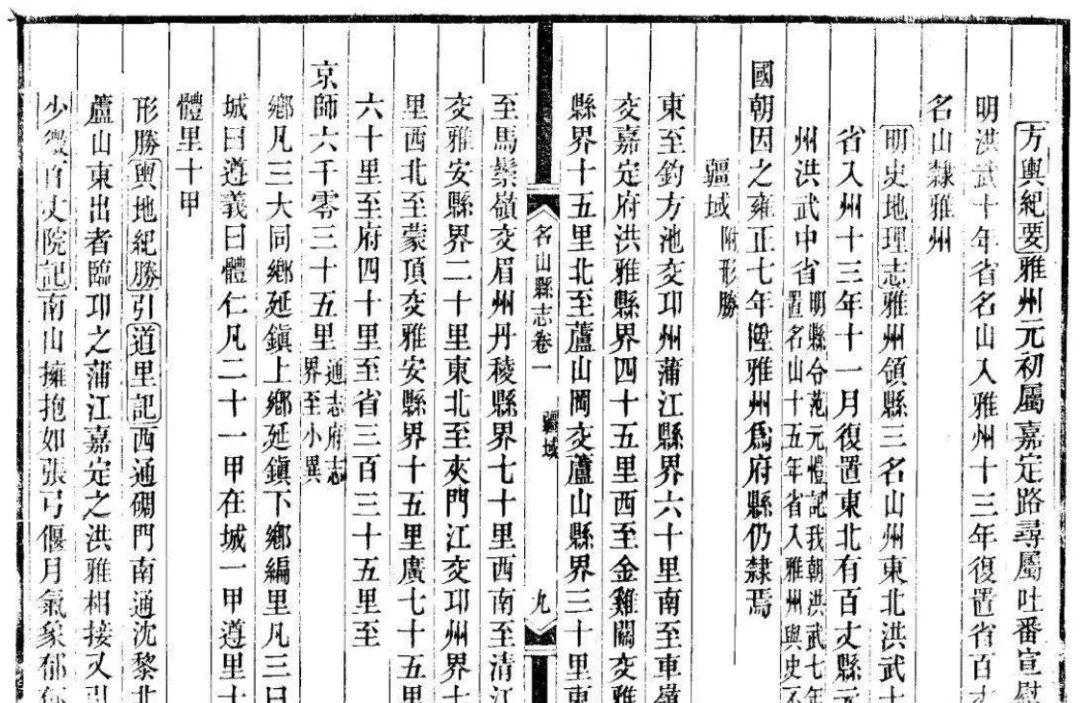 方輿紀要雅州元初屬嘉定路尋屬吐番宣慰
明洪武十年省名山入雅州十三年復置省百丈
名山隸雅州
明史地理志雅州領縣三名山州東北洪武十
省入州十三年十一月復置東北有百丈縣元
州洪武中省明縣令范元禮記我朝洪武七年
置名山十五年省入雅州與史不
國朝因之雍正七年陞雅州爲府縣仍隸焉
疆域附形勝
東至釣方池交邛州蒲江縣界六十里南至車嶺
交嘉定府洪雅縣界四十五里西至金雞關交雅
縣界十五里北至蘆山岡交蘆山縣界三十里東
名山縣志卷一 疆域 九
至馬鬃嶺交眉州丹稜縣界七十里西南至清江
交雅安縣界二十里東北至夾門江交邛州界十
里西北至蒙頂交雅安縣界十五里廣七十五里
六十里至府四十里至省三百三十五里至
京師六千零三十五里通志府志
界至小異
鄉凡三大同鄉延鎮上鄉延鎮下鄉編里凡三曰
城曰遵義曰體仁凡二十一甲在城一甲遵里十
體里十甲
形勝輿地紀勝引道里記西通碉門南通沈黎北
蘆山東出者臨邛之蒲江嘉定之洪雅相接又引
少微百丈院記南山擁抱如張弓偃月氣象郁